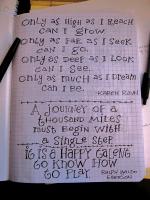 Only as High as I Reach
Can I Grow
Only as Far as I Seek
Can I Go.
Only as Deep as I Look
Can I See.
Only as much as I Dream
Can I Be.
Karen Ravn
A journey of a
Thousand Miles
must Begin with
a Single Step
It is a Happy Talent
to Know How
to Play.
Ralph Waldo
Emerson